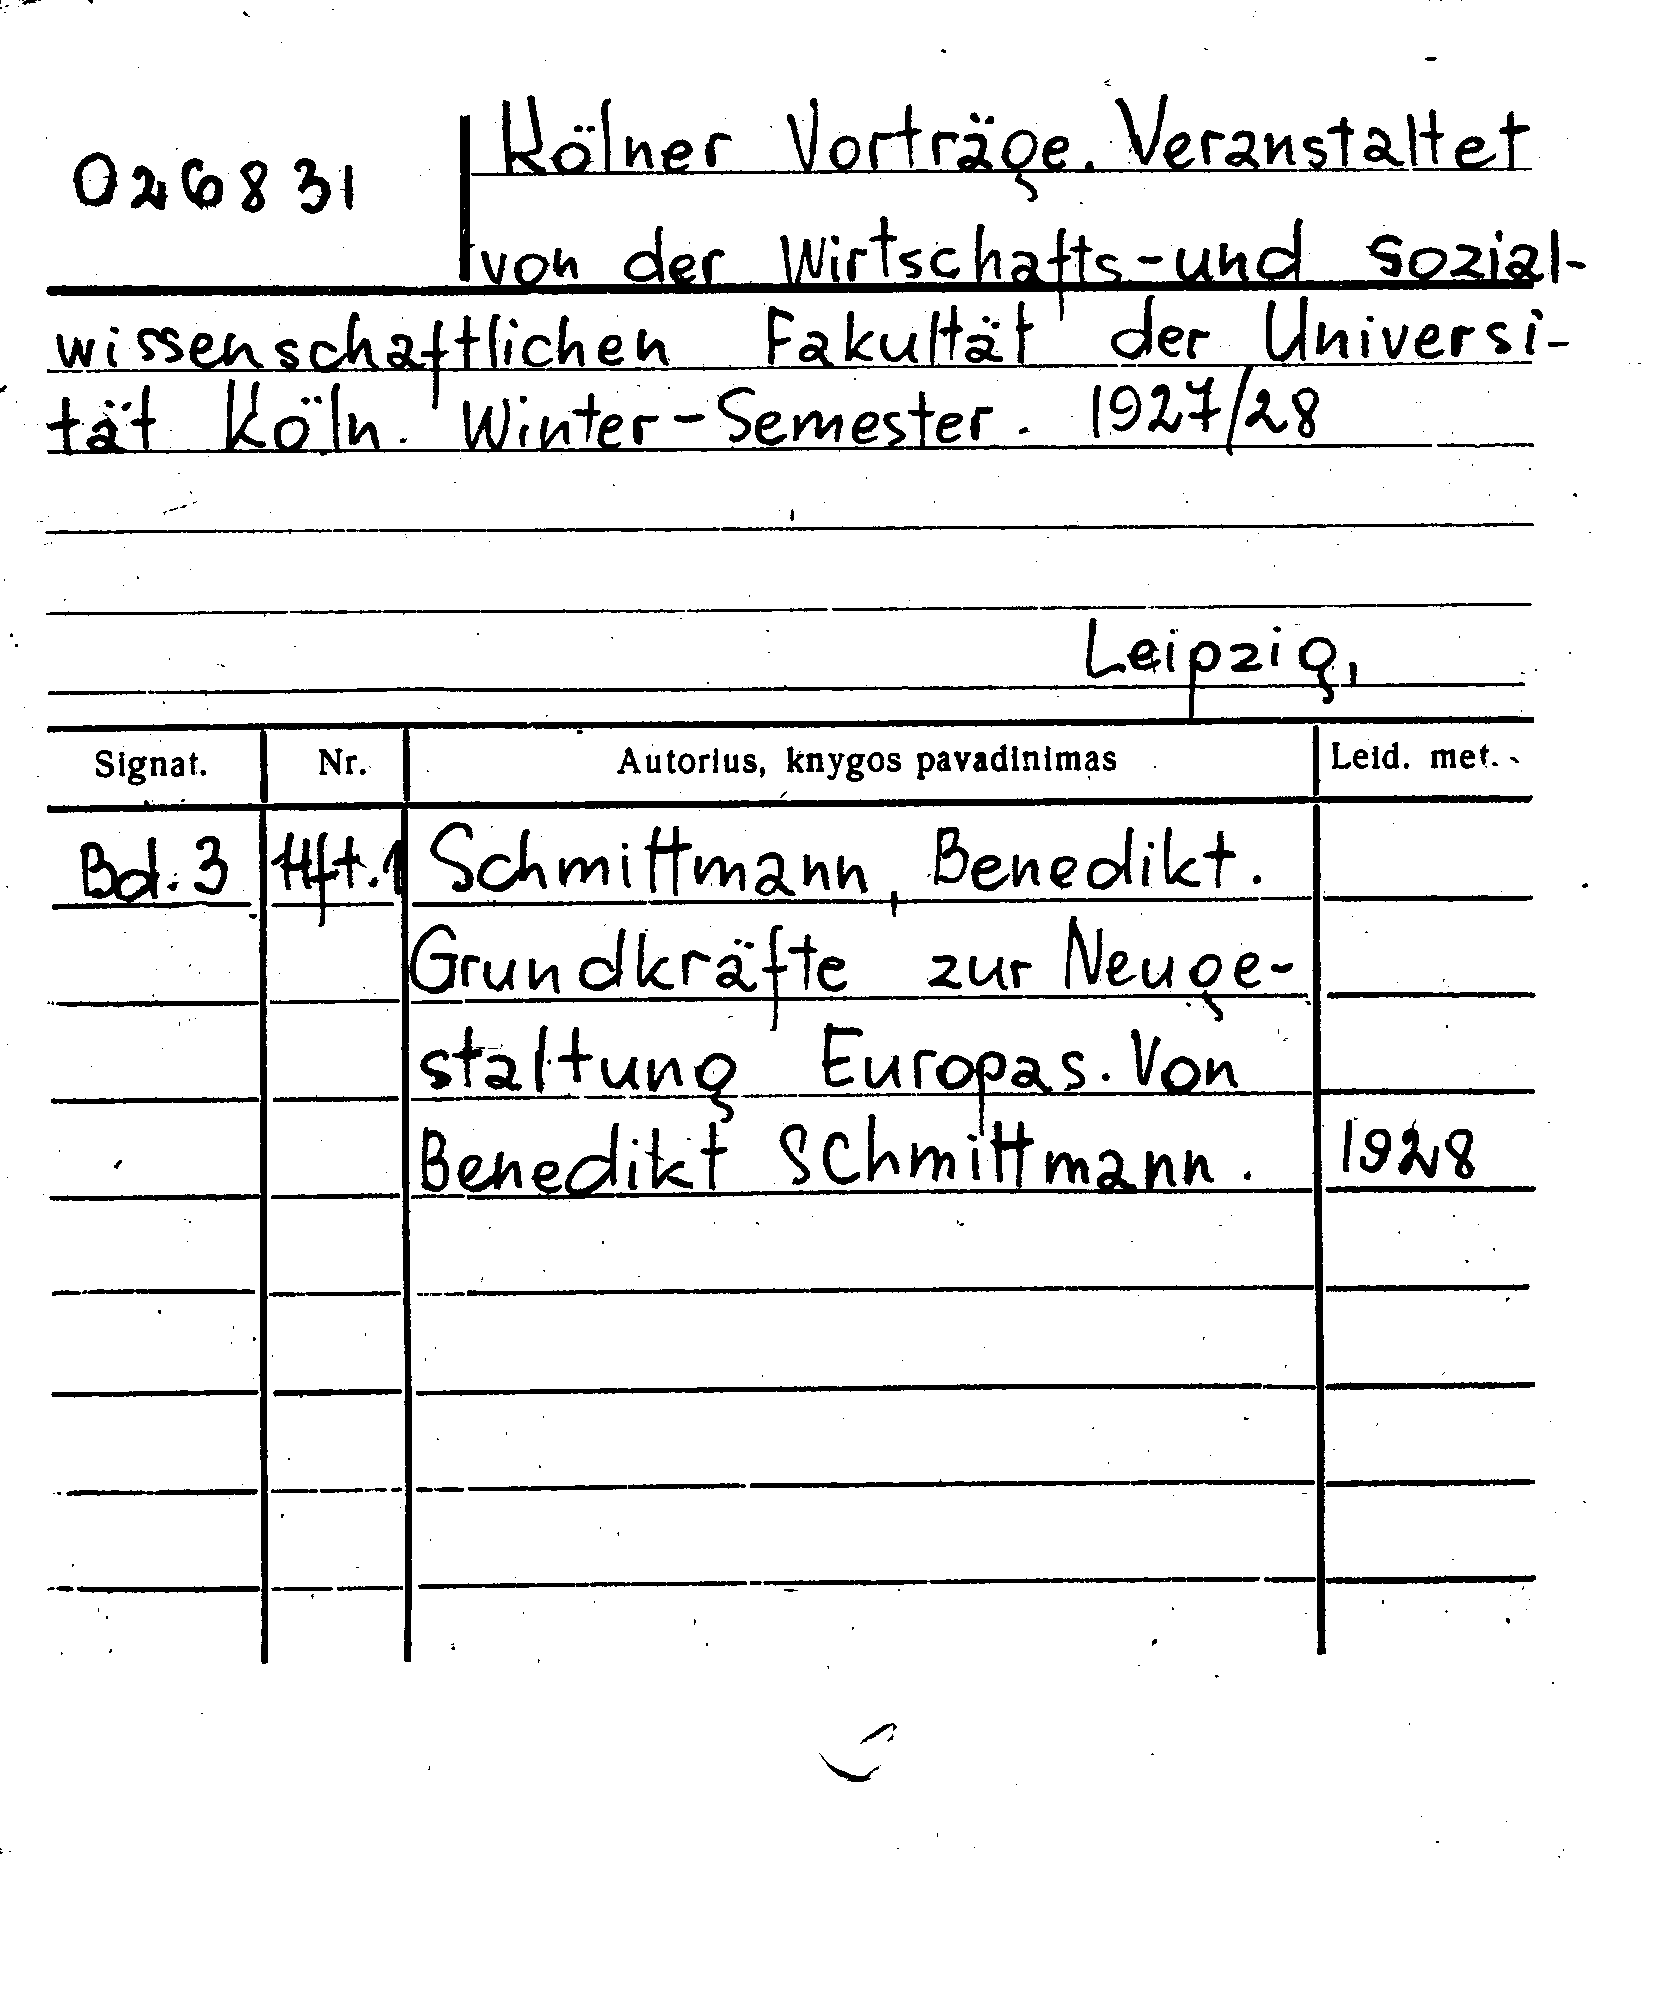 Kölner Vorträge. Veranstaltet
026831
von der Wirtschafts-und Sozial-
wissenschaftlichen Fakultät der Universi-
tät Köln. Winter-Semester. 1927/28
Leipzig,
Signat. Nr. Autorius, knygos pavadinimas Leid. met.
Bd. 3 Hft. 1 Schmittmann, Benedikt.
Grundkräfte zur Neuge-
staltung Europas. Von
Benedikt Schmittmann. 1928